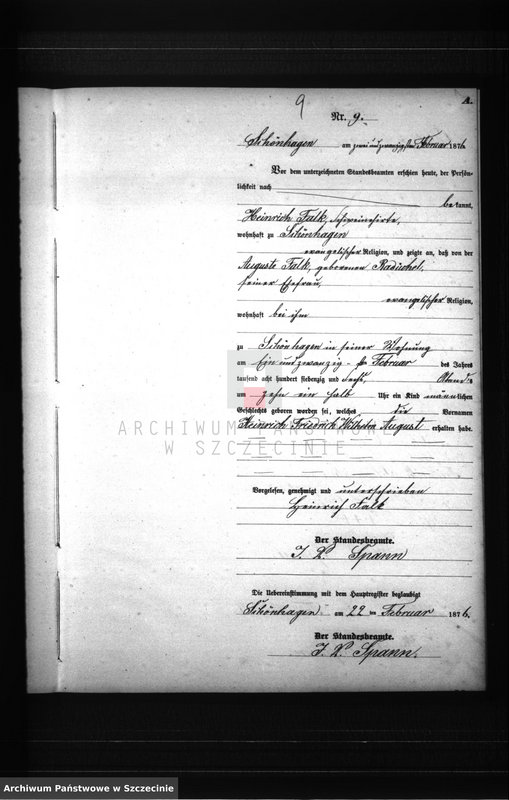 9
A.
Nr. 9.
Schönhagen am zwei und zwanzigsten Februar 1876
Vor dem unterzeichneten Standesbeamten erschien heute, der Persön-
lichkeit nach
be kannt,
Heinrich Falk, Schweinehirte,
wohnhaft zu Schönhagen
evangelischer Religion, und zeigte an, daß von der
Auguste Falk, geborenen
seiner Ehefrau,
evangelischer Religion,
wohnhaft bei ihm
zu Schönhagen in seiner Wohnung
am Ein und zwanzig-sten Februar des Jahres
tausend acht hundert siebenzig und sechs, Abends
um zehn ein halb Uhr ein Kind männlichen
Geschlechts geboren worden sei, welches die Vornamen
Heinrich Friedrich Wilhelm August erhalten habe.
ARCHIWUM PAŃSTWOWE
W SZCZECINIE
Vorgelesen, genehmigt und unterschrieben
Heinrich Falk
Der Standesbeamte.
I. V. Spann
Die Uebereinstimmung mit dem Hauptregister beglaubigt
Schönhagen am 22 ten Februar 1876.
Der Standesbeamte.
I. V. Spann.
Archiwum Państwowe w Szczecinie